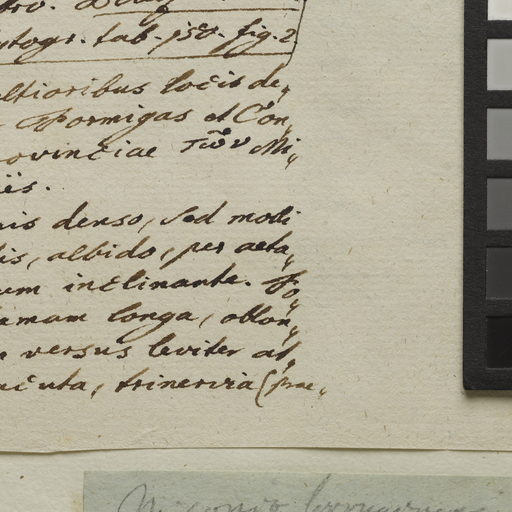 ytogr. tab. 158. fig. 2
altioribus locis de„
Formigas et Con„
rovinciae τῶν Mi„
ës.
nis denso, sed molli
lis, albido, per aeta„
um inclinante. Fo„
lamam longa, oblon„
e versus leviter at„
nuta, trinervia (prae„